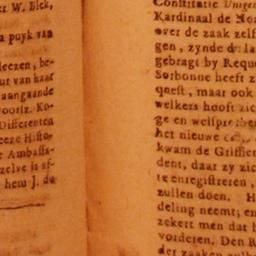 W. Blek,
puyk van
leezen, be-
uut van haar
aangaande
voortz. Ko-
Differenten
eeze Histo-
Ambassa-
zelve is af-
hem J. du
Constitutie
Kardinaal de Noa
over de zaak zelf
gen, zynde de la
gebragt by Reque
Sorbonne heeft z
qeest, maar ook
welkers hooft zic
ge en welspre
het nieuwe
kwam de Griffier
dent, daar zy zic
te enregistreren,
zullen doen. H
deling neemt, en
zekert men dat h
vorderen. Den R
der zaaken